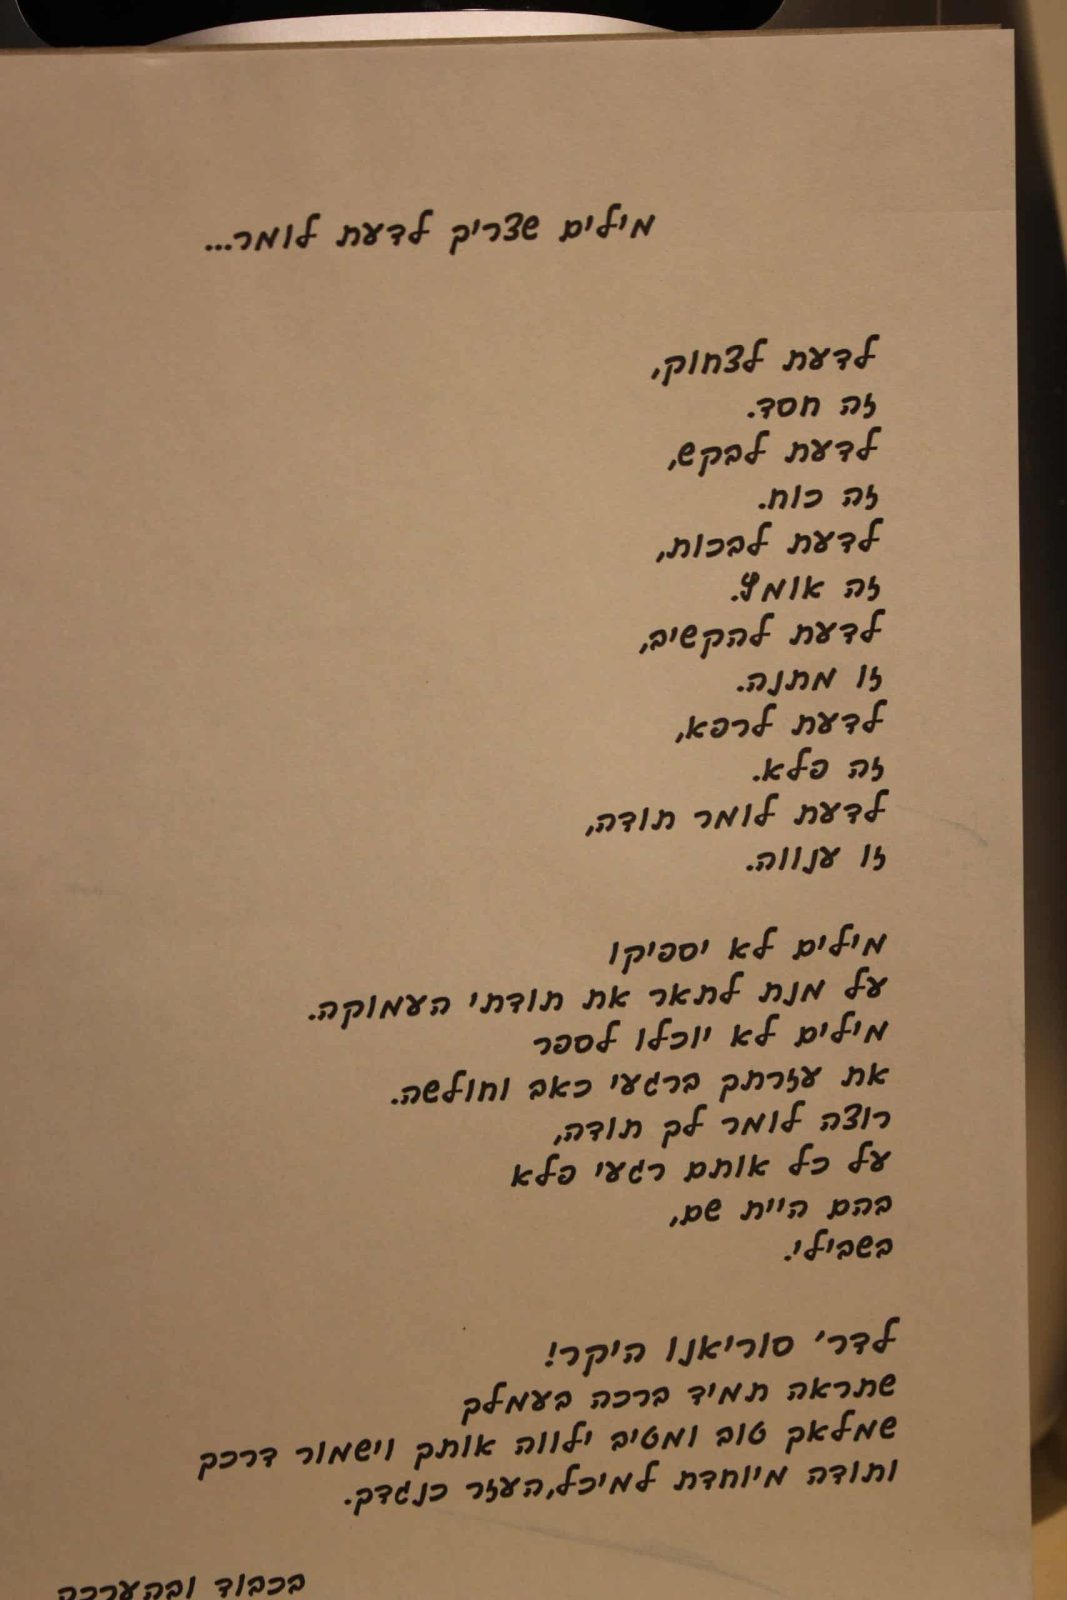 מילים שצריך לדעת לומר...
לדעת לצחוק,
זה חסד.
לדעת לבקש,
זה כוח.
לדעת לבכות,
זה אומץ.
לדעת להקשיב,
זו מתנה.
לדעת לרפא,
זה פלא.
לדעת לומר תודה,
זו ענווה.
מילים לא יספיקו
על מנת לתאר את תודתי העמוקה.
מילים לא יוכלו לספר
את עזרתך ברגעי כאב וחולשה.
רוצה לומר לך תודה,
על כל אותם רגעי פלא
בהם היית שם,
בשבילי.
לדר' סוריאנו היקר!
שתראה תמיד ברכה בעמלך
שמלאך טוב ומטיב ילווה אותך וישמור דרכך
ותודה מיוחדת למיכל,העזר כנגדך.
בכבוד ובהערכה